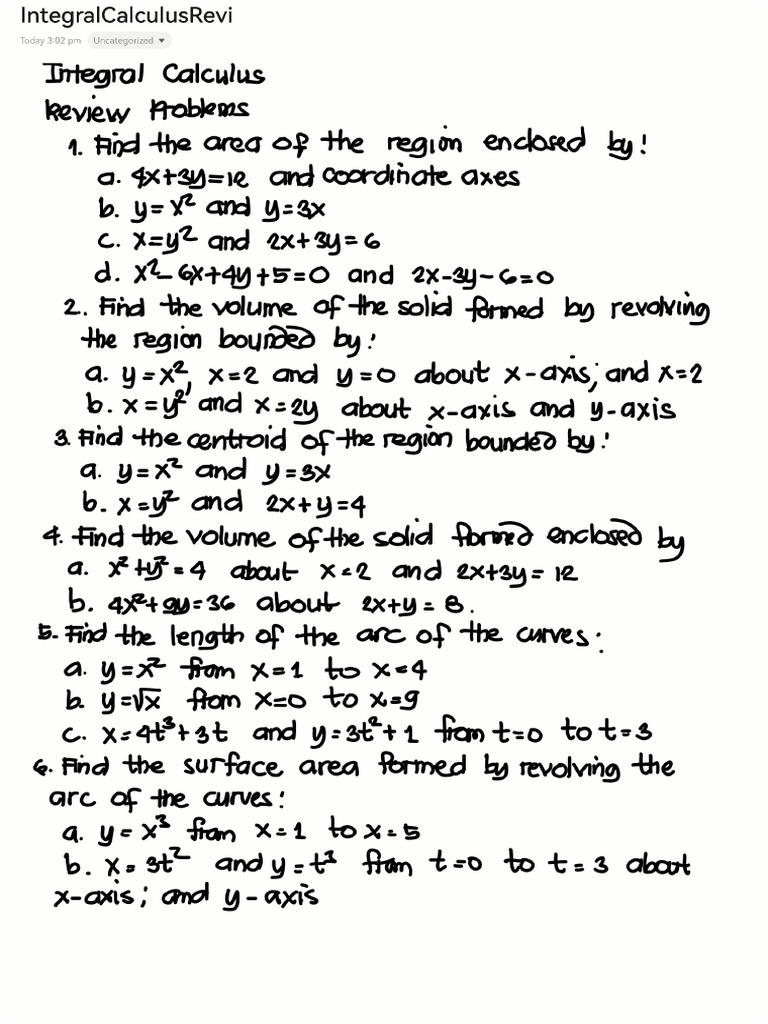 IntegralCalculusRevi
Today 3:02 pm Uncategorized
Integral Calculus
Review Problems
1. Find the area of the region enclosed by:
a. 4x+3y=12 and coordinate axes
b. y=x² and y=3x
c. x=y² and 2x+3y=6
d. x²-6x+4y+5=0 and 2x-3y-6=0
2. Find the volume of the solid formed by revolving
the region bounded by:
a. y=x², x=2 and y=0 about x-axis; and x=2
b. x=y², and x=2y about x-axis and y-axis
3. Find the centroid of the region bounded by:
a. y=x² and y=3x
b. x=y² and 2x+y=4
4. Find the volume of the solid formed enclosed by
a. x²+y²=4 about x=2 and 2x+3y=12
b. 4x²+9y=36 about 2x+y=8.
5. Find the length of the arc of the curves:
a. y=x² from x=1 to x=4
b. y=√x from x=0 to x=9
c. x=4t³+3t and y=3t²+1 from t=0 to t=3
6. Find the surface area formed by revolving the
arc of the curves:
a. y=x³ from x=1 to x=5
b. x=3t² and y=t³ from t=0 to t=3 about
x-axis; and y-axis